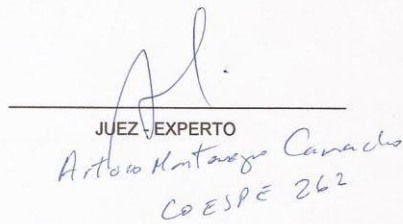 JUEZ - EXPERTO
Arturo Montenegro Camacho
COESPE 262